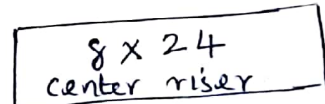 8 x 24
center riser